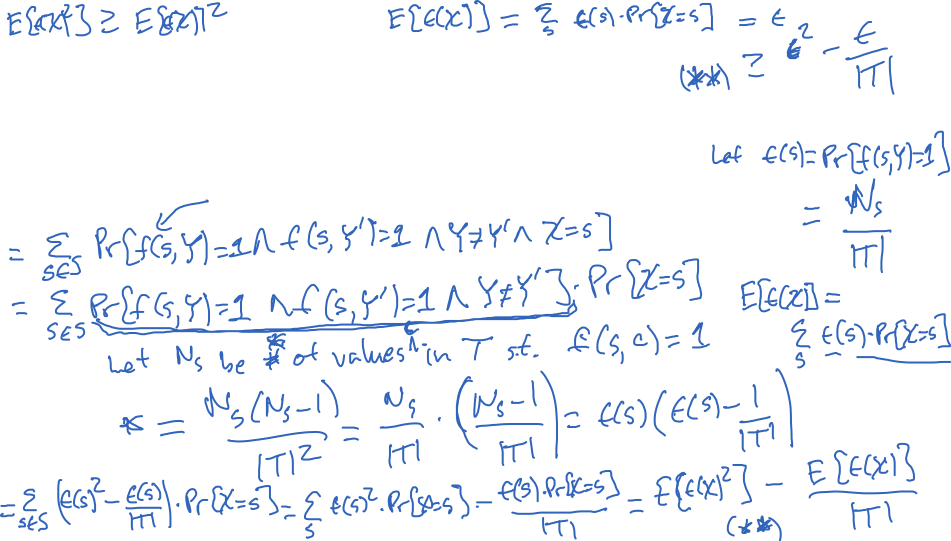 E[ε(X)²] ≥ E[ε(X)]²
E[ε(X)] = Σ_s ε(s)·Pr[X=s] = ε
(**) ≥ ε² - ε/|T|
Let ε(s) = Pr[f(s,Y)=1]
= N_s/|T|
= Σ_{s∈S} Pr[f(s,Y)=1 ∧ f(s,Y')=1 ∧ Y≠Y' ∧ X=s]
= Σ_{s∈S} Pr[f(s,Y)=1 ∧ f(s,Y')=1 ∧ Y≠Y']·Pr[X=s]
E[ε(X)] =
Σ_s ε(s)·Pr[X=s]
*
Let N_s be # of values^c in T s.t. f(s,c) = 1
* = N_s(N_s-1)/|T|² = N_s/|T| · (N_s-1/|T|) = ε(s)(ε(s) - 1/|T|)
= Σ_{s∈S} (ε(s)² - ε(s)/|T|)·Pr[X=s] = Σ_s ε(s)²·Pr[X=s] - ε(s)·Pr[X=s]/|T| = E[ε(X)²] - E[ε(X)]/|T|
(**)